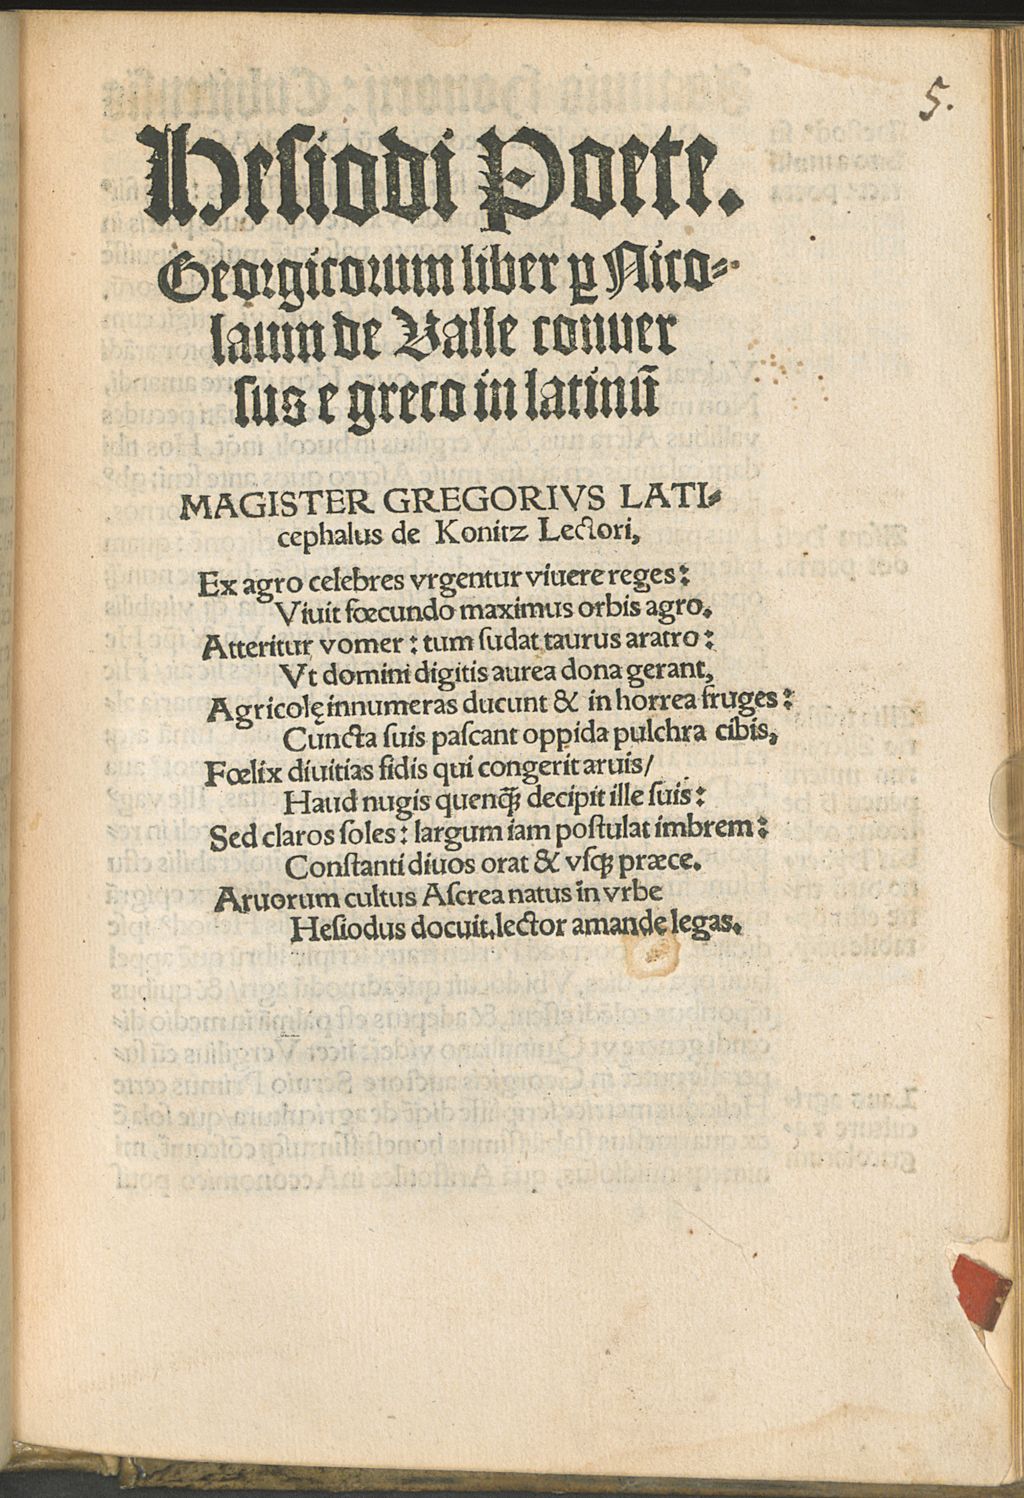 5.
Hesiodi Poete.
Georgicorum liber ꝑ Nico⸗
laum de Valle conuer
sus e greco in latinū
MAGISTER GREGORIVS LATI⸗
cephalus de Konitz Lectori,
Ex agro celebres vrgentur viuere reges:
Viuit fœcundo maximus orbis agro.
Atteritur vomer: tum ſudat taurus aratro:
Vt domini digitis aurea dona gerant,
Agricolę innumeras ducunt & in horrea fruges:
Cuncta ſuis paſcant oppida pulchra cibis,
Fœlix diuitias fidis qui congerit aruis/
Haud nugis quenqꝫ decipit ille ſuis:
Sed claros ſoles: largum iam poſtulat imbrem:
Conſtanti diuos orat & vſqꝫ præce.
Aruorum cultus Aſcrea natus in vrbe
Heſiodus docuit, lector amandę legas.